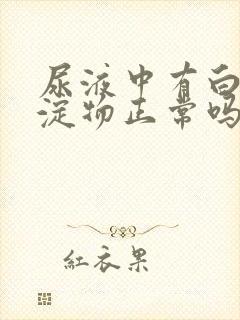 尿液中有白
淀物正常吗
紅衣果